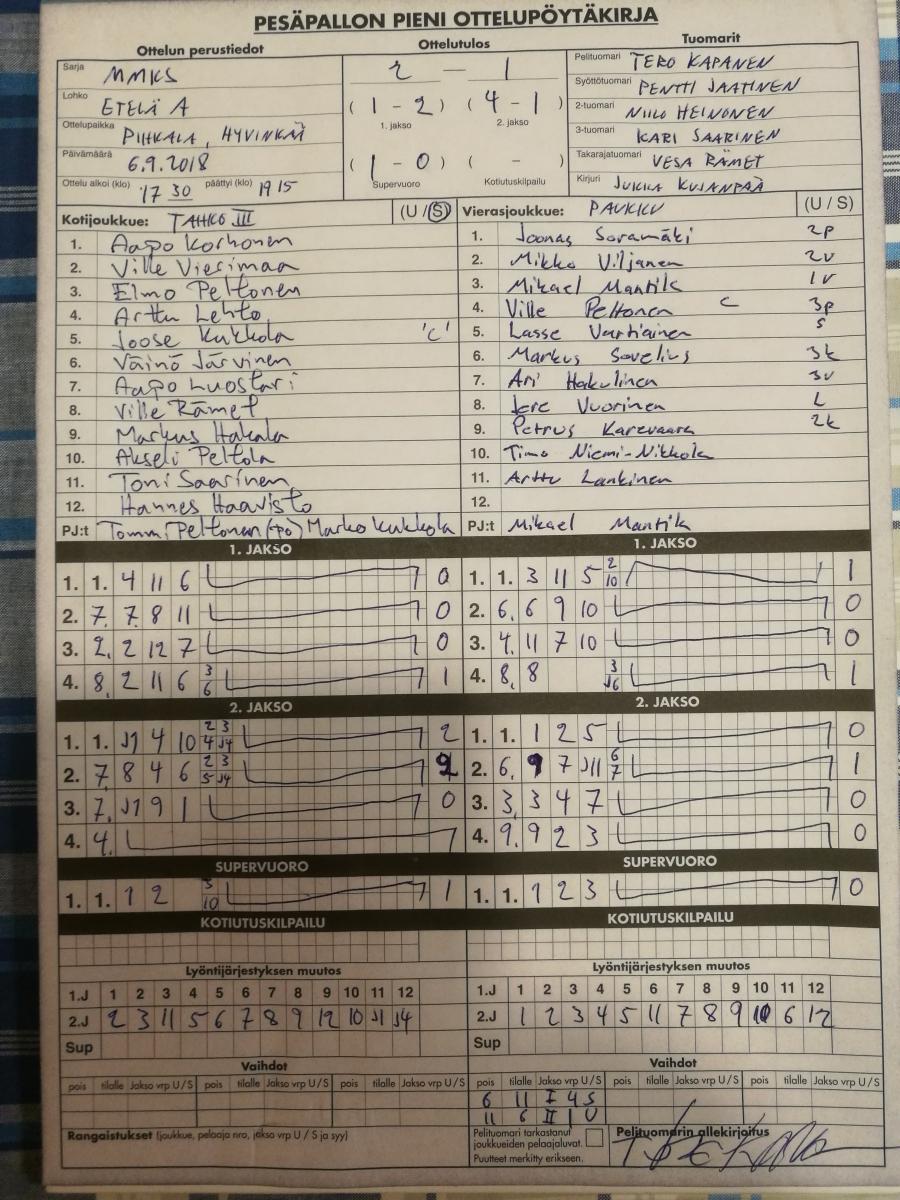 PESÄPALLON PIENI OTTELUPÖYTÄKIRJA
Ottelun perustiedot Ottelutulos Tuomarit
Sarja MMKS
Lohko ETELÄ A
Ottelupaikka PIHKALA, HYVINKÄÄ
Päivämäärä 6.9.2018
Ottelu alkoi (klo) 17 30 päättyi (klo) 19 15
2 – 1
( 1 - 2 ) ( 4 - 1 )
1. jakso 2. jakso
( 1 - 0 ) ( - )
Supervuoro Kotiutuskilpailu
Pelituomari TERO KAPANEN
Syöttötuomari PENTTI JAATINEN
2-tuomari NIILO HEINONEN
3-tuomari KARI SAARINEN
Takarajatuomari VESA RÄMET
Kirjuri JUKKA KUJANPÄÄ
Kotijoukkue: TAHKO III (U / S)
1. Aapo Korhonen
2. Ville Vierimaa
3. Elmo Peltonen
4. Arttu Lehto
5. Joose Kukkola 'C'
6. Väinö Järvinen
7. Aapo Luostari
8. Ville Rämet
9. Markus Hakala
10. Akseli Peltola
11. Toni Saarinen
12. Hannes Haavisto
PJ:t Tommi Peltonen (pö) Marko Kukkola
Vierasjoukkue: PAUKKU (U / S)
1. Joonas Soramäki 2p
2. Mikko Viljanen 2v
3. Mikael Mantik 1v
4. Ville Peltonen C 3p
5. Lasse Vartiainen S
6. Markus Savelius 3k
7. Ari Hakulinen 3v
8. Jere Vuorinen L
9. Petrus Karevaara 2k
10. Timo Niemi-Nikkola
11. Arttu Lankinen
12.
PJ:t Mikael Mantik
1. JAKSO
1. 1. 4 11 6 0
2. 7. 7 8 11 0
3. 2. 2 12 7 0
4. 8. 2 11 6 3/6 1
1. JAKSO
1. 1. 3 11 5 2/10 1
2. 6. 6 9 10 0
3. 4. 11 7 10 0
4. 8. 8 3/J6 1
2. JAKSO
1. 1. J1 4 10 2/4 3/J4 2
2. 7. 8 4 6 2/5 3/J4 2
3. 7. J1 9 1 0
4. 4.
2. JAKSO
1. 1. 1 2 5 0
2. 6. 9 7 J11 6/7 1
3. 3. 3 4 7 0
4. 9. 9 2 3 0
SUPERVUORO
1. 1. 1 2 3/10 1
SUPERVUORO
1. 1. 1 2 3 0
KOTIUTUSKILPAILU
KOTIUTUSKILPAILU
Lyöntijärjestyksen muutos
1.J 1 2 3 4 5 6 7 8 9 10 11 12
2.J 2 3 11 5 6 7 8 9 12 10 J1 J4
Sup
Lyöntijärjestyksen muutos
1.J 1 2 3 4 5 6 7 8 9 10 11 12
2.J 1 2 3 4 5 11 7 8 9 10 6 12
Sup
Vaihdot
pois tilalle Jakso vrp U / S pois tilalle Jakso vrp U / S pois tilalle Jakso vrp U / S
Vaihdot
pois tilalle Jakso vrp U / S pois tilalle Jakso vrp U / S pois tilalle Jakso vrp U / S
6 11 I 4 S
11 6 II 1 U
Rangaistukset (joukkue, pelaaja nro, jakso vrp U / S ja syy)
Pelituomari tarkastanut
joukkueiden pelaajaluvat.
Puutteet merkitty erikseen.
Pelituomarin allekirjoitus